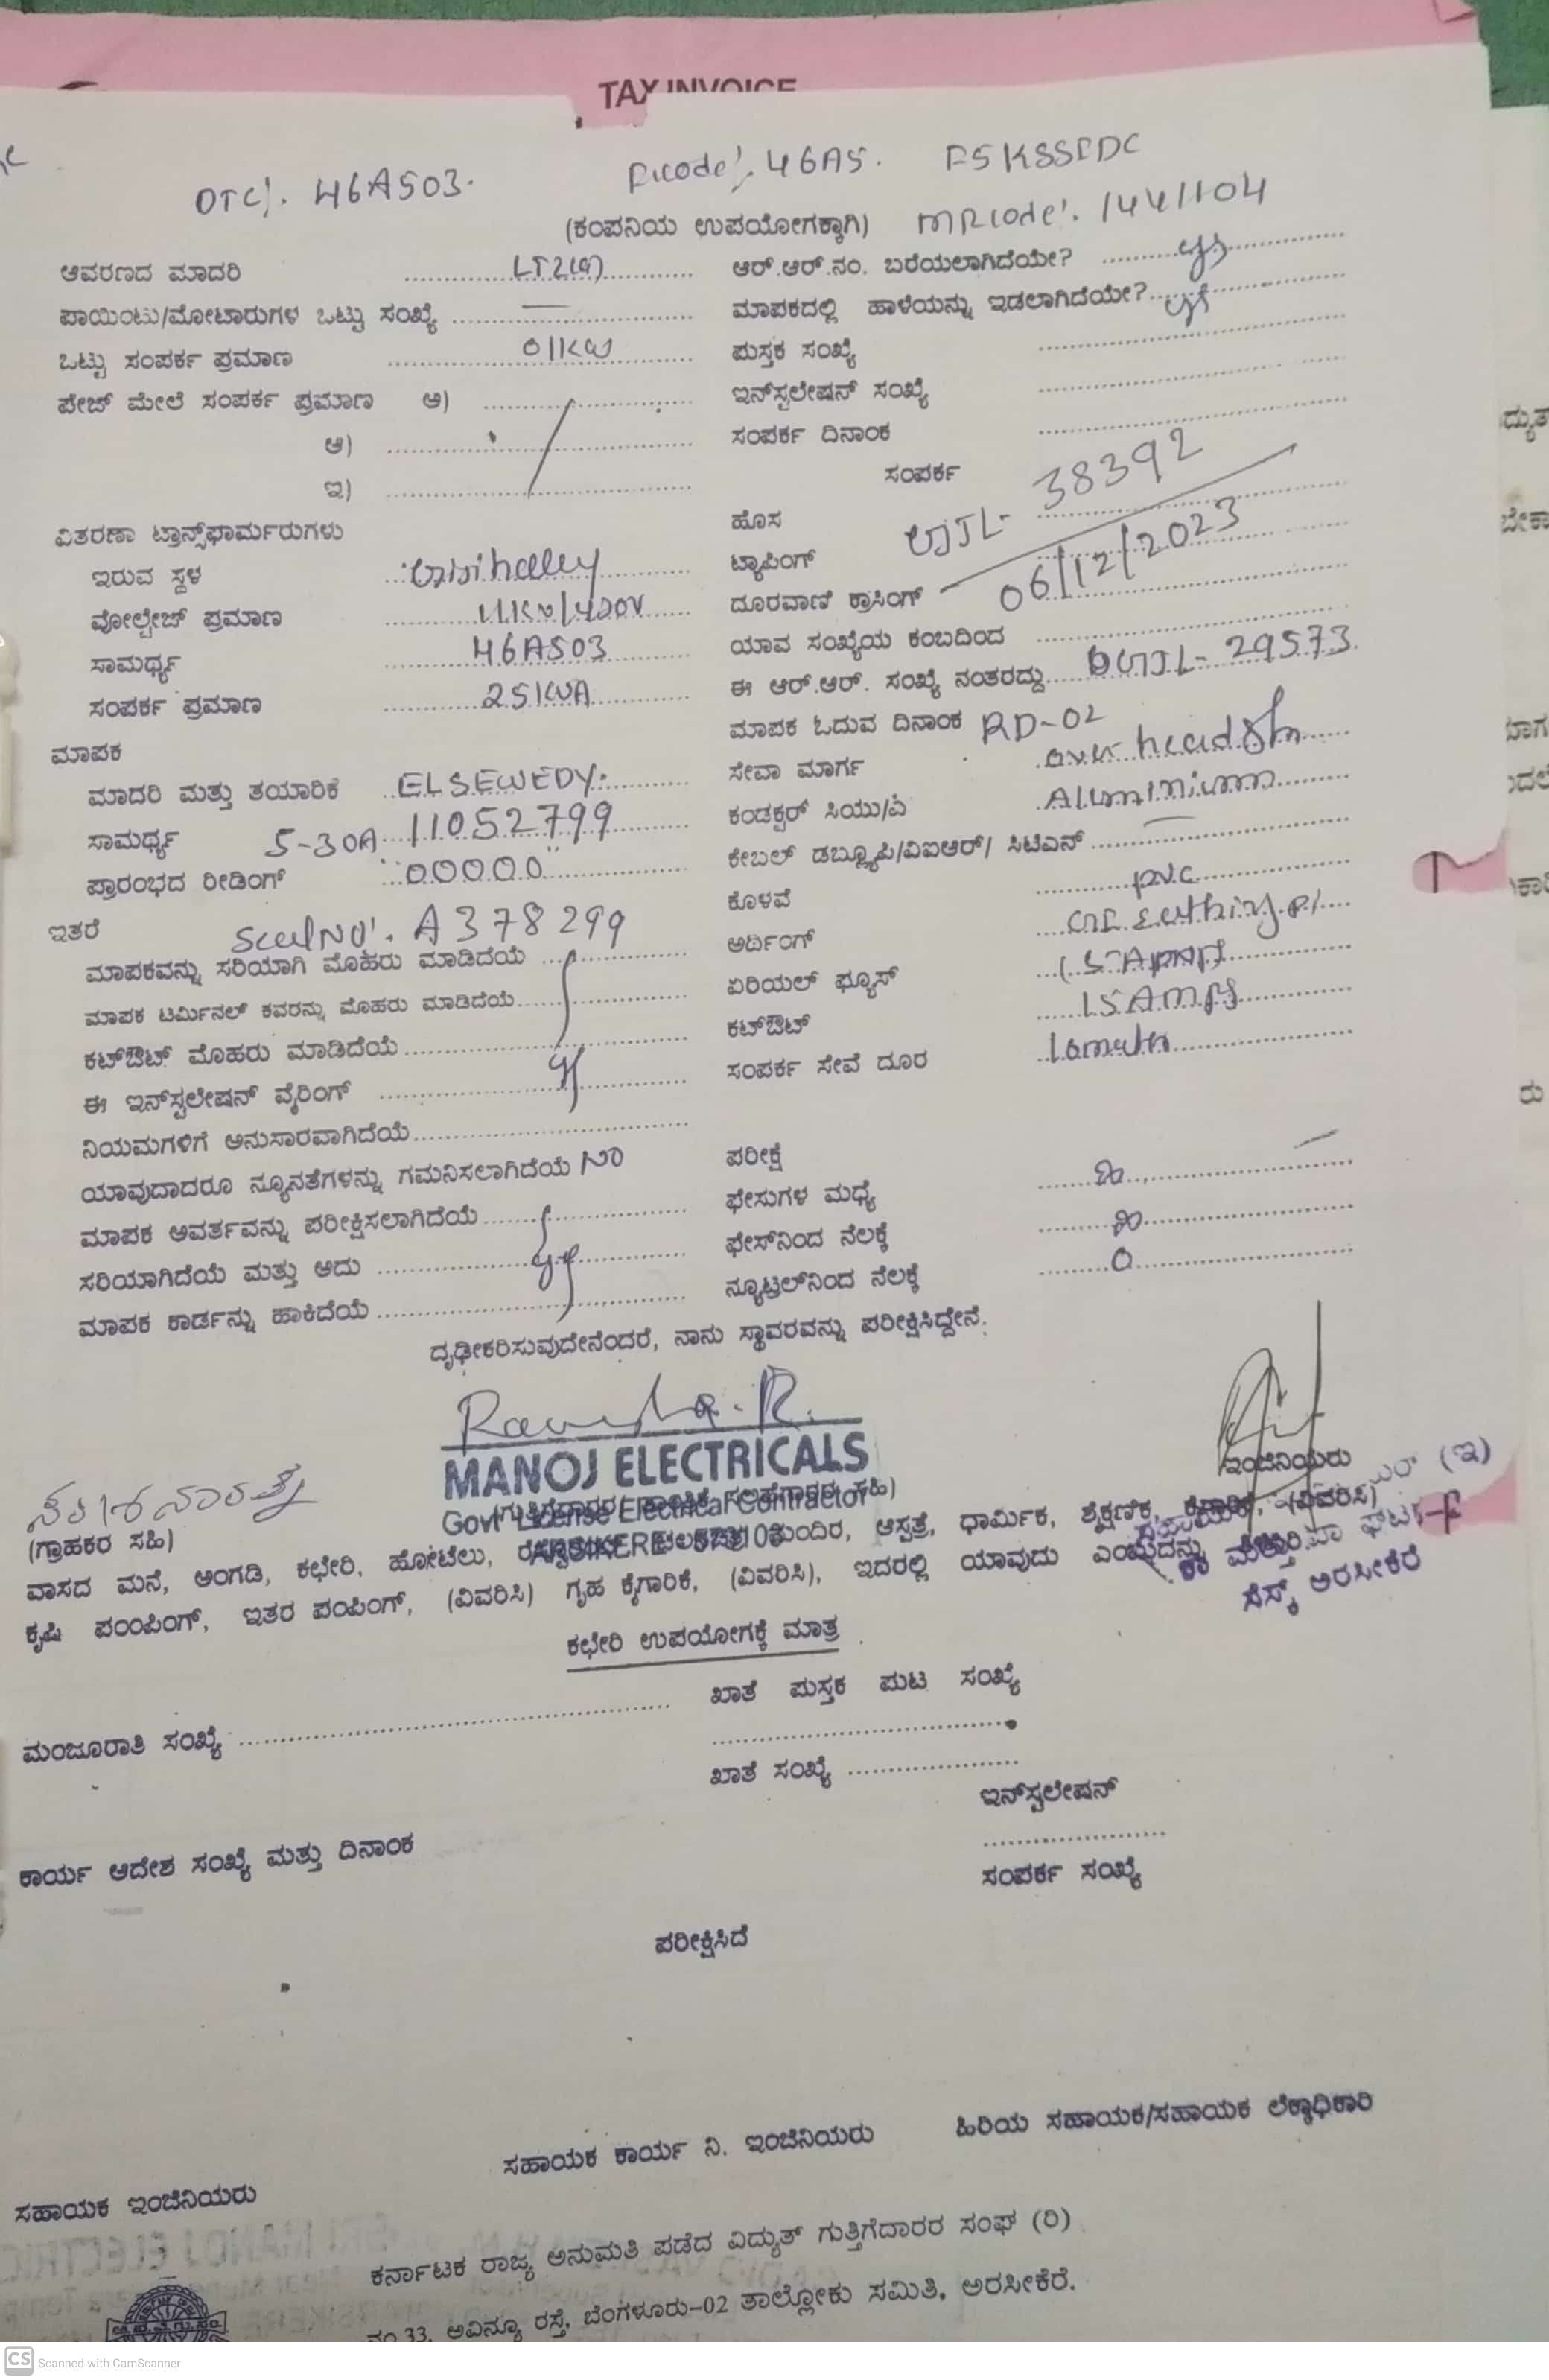 TAX INVOICE
DTC:. 46A503. F.code:. 46A5.
(ಕಂಪನಿಯ ಉಪಯೋಗಕ್ಕಾಗಿ) MRcode:. 1441104
ಆವರಣದ ಮಾದರಿ LT2(a) ಆರ್.ಆರ್.ನಂ. ಬರೆಯಲಾಗಿದೆಯೇ? yes
ಪಾಯಿಂಟು/ಮೋಟಾರುಗಳ ಒಟ್ಟು ಸಂಖ್ಯೆ — ಮಾಪಕದಲ್ಲಿ ಹಾಳೆಯನ್ನು ಇಡಲಾಗಿದೆಯೇ? yes
ಒಟ್ಟು ಸಂಪರ್ಕ ಪ್ರಮಾಣ 01KW ಪುಸ್ತಕ ಸಂಖ್ಯೆ
ಪೇಜ್ ಮೇಲೆ ಸಂಪರ್ಕ ಪ್ರಮಾಣ ಅ) ಇನ್‌ಸ್ಟಲೇಷನ್ ಸಂಖ್ಯೆ
ಆ) ಸಂಪರ್ಕ ದಿನಾಂಕ
ಇ) ಸಂಪರ್ಕ
38392
ವಿತರಣಾ ಟ್ರಾನ್ಸ್‌ಫಾರ್ಮರುಗಳು ಹೊಸ
ಇರುವ ಸ್ಥಳ ಟ್ಯಾಪಿಂಗ್
06/12/2023
ವೋಲ್ಟೇಜ್ ಪ್ರಮಾಣ 11KV/420V ದೂರವಾಣಿ ಕ್ರಾಸಿಂಗ್
ಸಾಮರ್ಥ್ಯ 46A503 ಯಾವ ಸಂಖ್ಯೆಯ ಕಂಬದಿಂದ
ಸಂಪರ್ಕ ಪ್ರಮಾಣ 25KVA ಈ ಆರ್.ಆರ್. ಸಂಖ್ಯೆ ನಂತರದ್ದು 29573
ಮಾಪಕ ಮಾಪಕ ಓದುವ ದಿನಾಂಕ RD-02
ಮಾದರಿ ಮತ್ತು ತಯಾರಿಕೆ ELSEWEDY. ಸೇವಾ ಮಾರ್ಗ over head
ಸಾಮರ್ಥ್ಯ 5-30A 11052799 ಕಂಡಕ್ಟರ್ ಸಿಯು/ಎ Aluminium
ಪ್ರಾರಂಭದ ರೀಡಿಂಗ್ "00000" ಕೇಬಲ್ ಡಬ್ಲ್ಯೂಪಿ/ವಿಐಆರ್/ ಸಿಟಿಎಸ್ —
ಕೊಳವೆ pvc
ಇತರೆ Seal No:. A378299 ಅರ್ಥಿಂಗ್
ಮಾಪಕವನ್ನು ಸರಿಯಾಗಿ ಮೊಹರು ಮಾಡಿದೆಯೆ ಏರಿಯಲ್ ಫ್ಯೂಸ್
ಮಾಪಕ ಟರ್ಮಿನಲ್ ಕವರನ್ನು ಮೊಹರು ಮಾಡಿದೆಯೆ ಕಟ್‌ಔಟ್ 15AMPS
ಕಟ್‌ಔಟ್ ಮೊಹರು ಮಾಡಿದೆಯೆ ಸಂಪರ್ಕ ಸೇವೆ ದೂರ
ಈ ಇನ್‌ಸ್ಟಲೇಷನ್ ವೈರಿಂಗ್
ನಿಯಮಗಳಿಗೆ ಅನುಸಾರವಾಗಿದೆಯೆ
ಯಾವುದಾದರೂ ನ್ಯೂನತೆಗಳನ್ನು ಗಮನಿಸಲಾಗಿದೆಯೆ NO ಪರೀಕ್ಷೆ
ಮಾಪಕ ಆವರ್ತವನ್ನು ಪರೀಕ್ಷಿಸಲಾಗಿದೆಯೆ ಫೇಸುಗಳ ಮಧ್ಯೆ
ಸರಿಯಾಗಿದೆಯೆ ಮತ್ತು ಅದು ಫೇಸ್‌ನಿಂದ ನೆಲಕ್ಕೆ
ಮಾಪಕ ಕಾರ್ಡನ್ನು ಹಾಕಿದೆಯೆ ನ್ಯೂಟ್ರಲ್‌ನಿಂದ ನೆಲಕ್ಕೆ 0
ದೃಢೀಕರಿಸುವುದೇನೆಂದರೆ, ನಾನು ಸ್ಥಾವರವನ್ನು ಪರೀಕ್ಷಿಸಿದ್ದೇನೆ.
MANOJ ELECTRICALS
ಇಂಜಿನಿಯರು
Govt License Electrical Contractor
ARSIKERE - 573103
(ಗ್ರಾಹಕರ ಸಹಿ)
ವಾಸದ ಮನೆ, ಅಂಗಡಿ, ಕಛೇರಿ, ಹೋಟೆಲು, ಮಂದಿರ, ಆಸ್ಪತ್ರೆ, ಧಾರ್ಮಿಕ, ಶೈಕ್ಷಣಿಕ, ಕೈಗಾರಿಕೆ, (ವಿವರಿಸಿ)
ಕೃಷಿ ಪಂಪಿಂಗ್, ಇತರ ಪಂಪಿಂಗ್, (ವಿವರಿಸಿ) ಗೃಹ ಕೈಗಾರಿಕೆ, (ವಿವರಿಸಿ), ಇದರಲ್ಲಿ ಯಾವುದು ಎಂಬುದನ್ನು
ಸೆಸ್ಕ್ ಅರಸೀಕೆರೆ
ಕಛೇರಿ ಉಪಯೋಗಕ್ಕೆ ಮಾತ್ರ
ಮಂಜೂರಾತಿ ಸಂಖ್ಯೆ ಖಾತೆ ಪುಸ್ತಕ ಪುಟ ಸಂಖ್ಯೆ
ಖಾತೆ ಸಂಖ್ಯೆ
ಇನ್‌ಸ್ಟಲೇಷನ್
ಕಾರ್ಯ ಆದೇಶ ಸಂಖ್ಯೆ ಮತ್ತು ದಿನಾಂಕ ಸಂಪರ್ಕ ಸಂಖ್ಯೆ
ಪರೀಕ್ಷಿಸಿದೆ
ಸಹಾಯಕ ಇಂಜಿನಿಯರು ಸಹಾಯಕ ಕಾರ್ಯ ನಿ. ಇಂಜಿನಿಯರು ಹಿರಿಯ ಸಹಾಯಕ/ಸಹಾಯಕ ಲೆಕ್ಕಾಧಿಕಾರಿ
ಕರ್ನಾಟಕ ರಾಜ್ಯ ಅನುಮತಿ ಪಡೆದ ವಿದ್ಯುತ್ ಗುತ್ತಿಗೆದಾರರ ಸಂಘ (ರಿ)
ನಂ.33, ಅವಿನ್ಯೂ ರಸ್ತೆ, ಬೆಂಗಳೂರು-02 ತಾಲ್ಲೋಕು ಸಮಿತಿ, ಅರಸೀಕೆರೆ.
CS Scanned with CamScanner